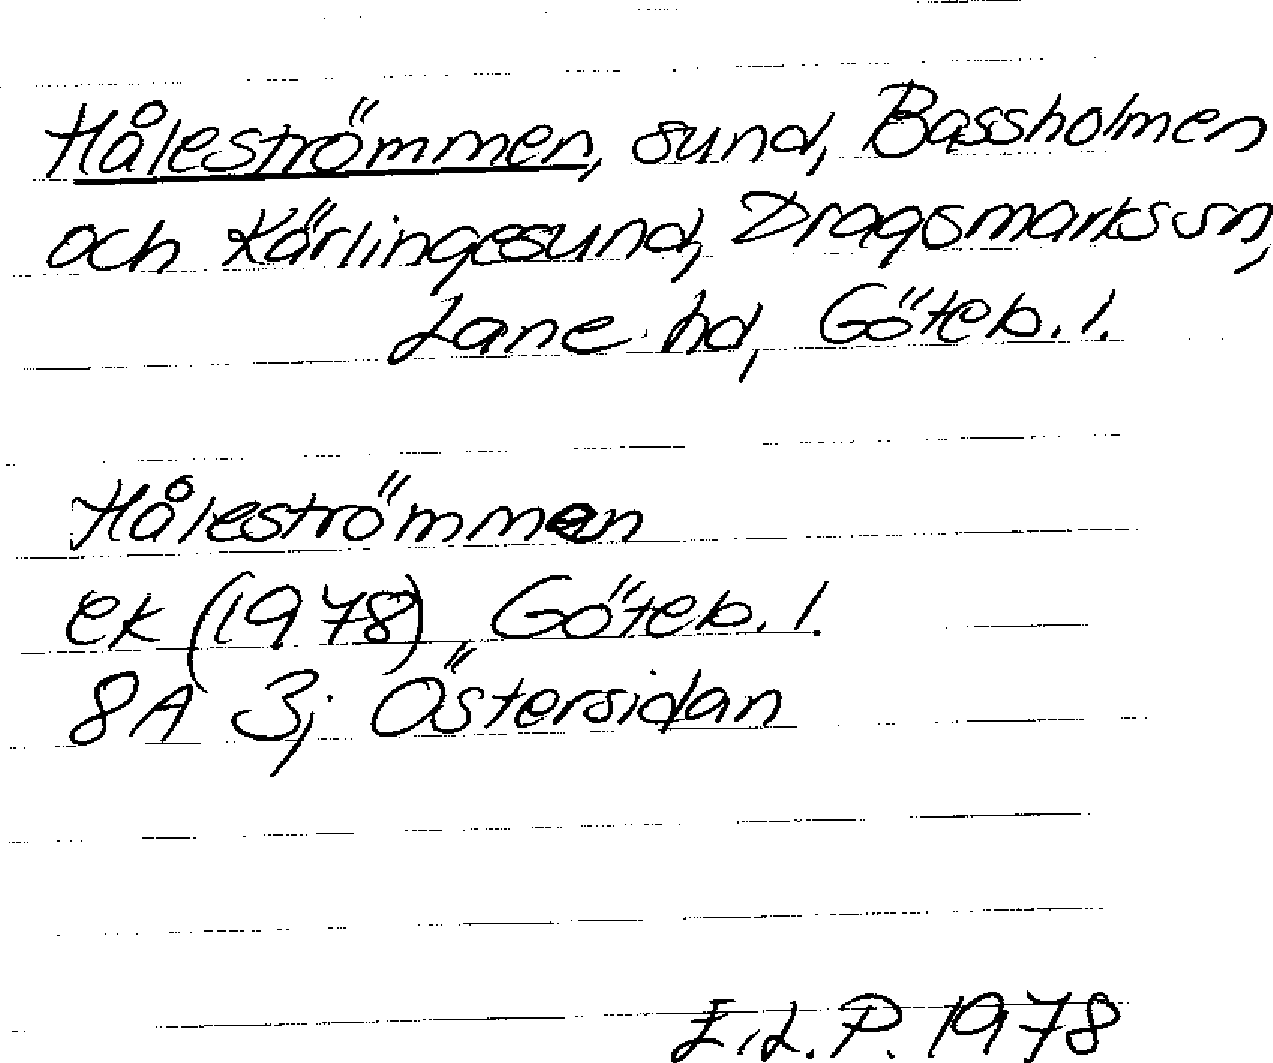 Håleströmmen, sund, Bassholmen
och Kärlingesund, Dragsmarks sn,
Lane hd, Göteb. l.
Håleströmmen
ek (1978), Göteb. l.
8A 3; Östersidan
E.L.P. 1978